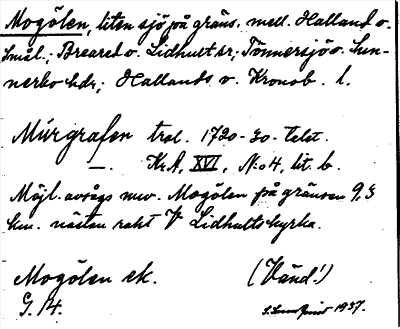 Mogölen, liten sjö på gräns. mell. Halland o.
Smål.; Breared o. Lidhult sr; Tönnersjö o. Sun-
nerbo hdr; Hallands o. Kronob. l.
Múrgrafen trol. 1720-30-talet.
—. KrA, XVI, No 4, lit. b.
Möjl. avsågs nuv. Mogölen på gränsen 9,5
km. nästan rakt V Lidhults kyrka.
Mogölen ek. (Vänd!)
G. 14. 1937.